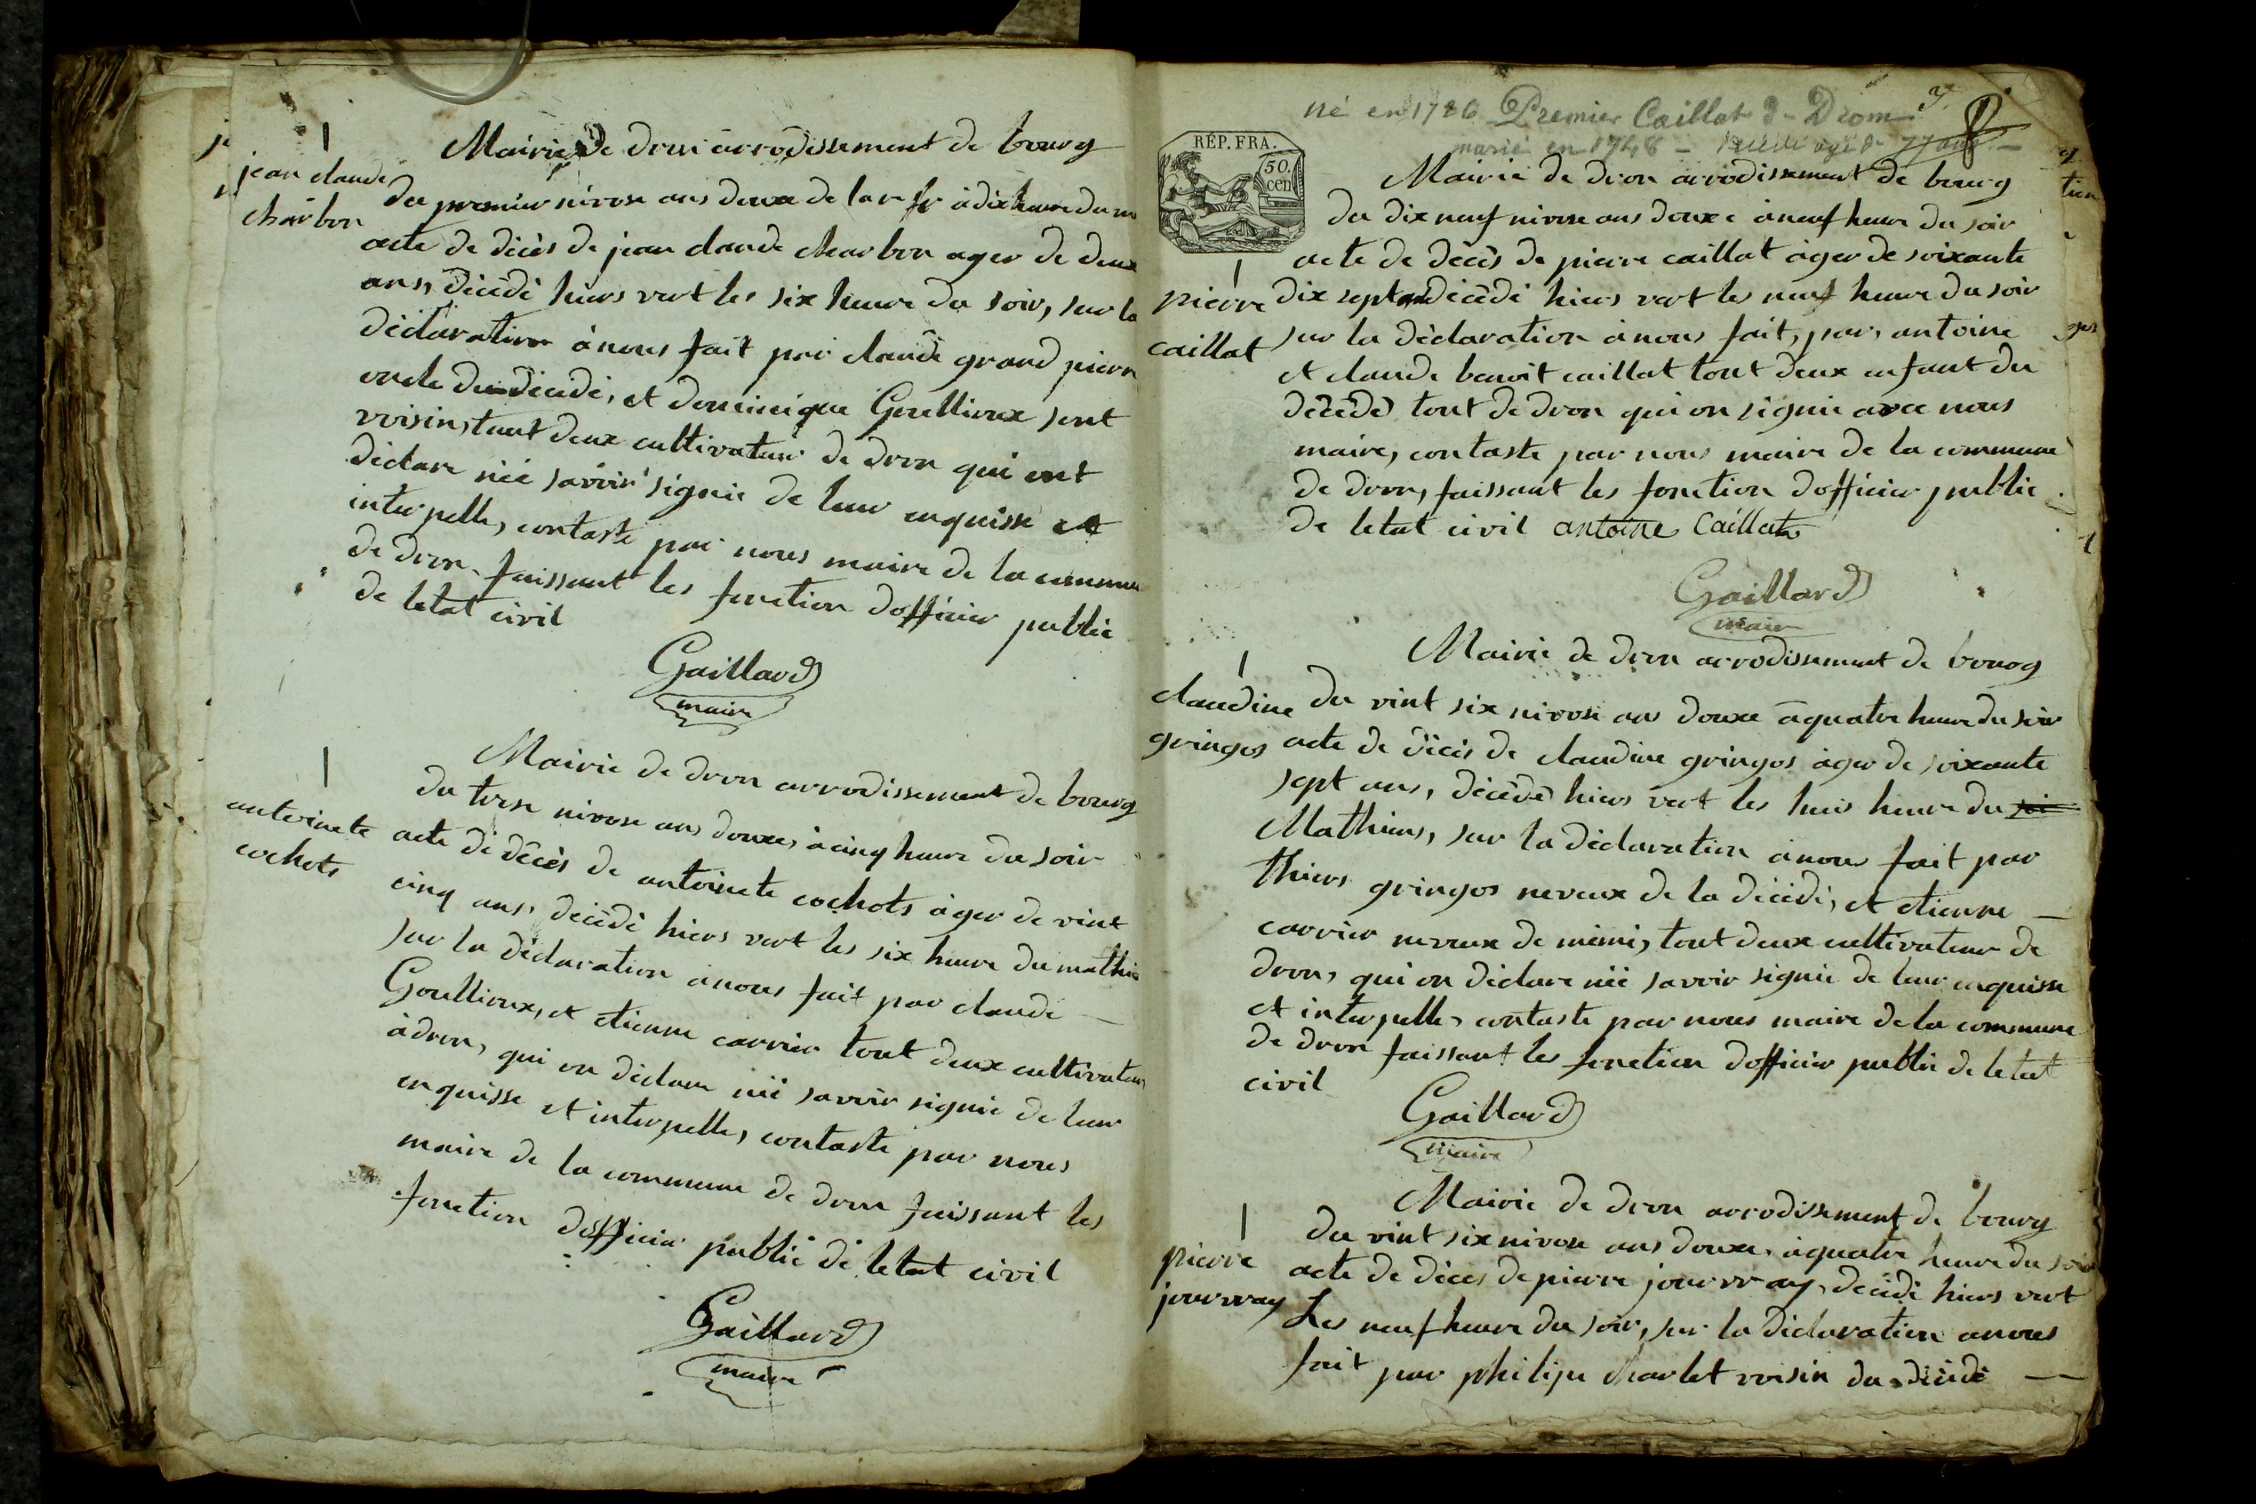 jean claude
charbon
Mairie de dron arrodissement de bourg
du premier nivose ans douxe de la r fr à dix heure du m
acte de décès de jean claude charbon ager de deux
ans, décédé hiers vert les six heure du soir, sur la
déclaration à nous fait par claude grand pierre
oncle du décédé, et dominique Goullioux sont
voisin, tout deux cultivateur de dron qui ont
déclare néé savoir signie de leur enquisse et
interpelle, contaste par nous maire de la commune
de dron faissant les fonction dofficier public
de letat civil
Gaillard
maire
antoinete
cochots
Mairie de dron arrodissement de bourg
du trese nivose ans douxe, à cinq heure du soir
acte de décès de antoinete cochots àger de vint
cinq ans, décédé hiers vert les six heure du mathin
sur la déclaration à nous fait par claude
Goullioux, et etienne carrier tout deux cultivateur
à dron, qui on déclare néé savoir signie de leur
enquisse et interpelle, contaste par nous
maire de la commune de dron faissant les
fonction dofficier public de letat civil
Gaillard
maire
né en 1726 Premier Caillat à Drom
marié en 1748 - décédé agé de 77 ans
REP. FRA.
50.
cen
pierre
caillat
Mairie de dron arrodissement de bourg
du dix neuf nivose ans douxe à neuf heure du soir
acte de décès de pierre caillat àger de soixante
dix sept ans décédé hiers vert les neuf heure du soir
sur la déclaration à nous fait, par, antoine
et claude benoit caillat tout deux enfant du
décédé tout de dron qui on signie avec nous
maire, contaste par nous maire de la commune
de dron, faissant les fonction dofficier public
de letat civil antoine Caillat
Gaillard
maire
claudine
gringos
Mairie de dron arrodissement de bourg
du vint six nivose ans douxe à quatre heure du soir
acte de décès de claudine gringos àger de soixante
sept ans, décédé hiers vert les huis heure du soi
Mathiens, sur la déclaration à nous fait par
thiers gringos neveux de la décédé, et etienne
carrier neveux de mémé, tout deux cultivateur de
dron, qui on déclare néé savoir signie de leur enquisse
et interpelle, contaste par nous maire de la commune
de dron faissant les fonction dofficier public de letat
civil
Gaillard
maire
pierre
jourvray
Mairie de dron arrodissement de bourg
du vint six nivose ans douxe, à quatre heure du soir
acte de décès de pierre jourvray, décédé hiers vert
Les neuf heure du soir, sur la déclaration à nous
fait par philipe charlet voisin du décédé